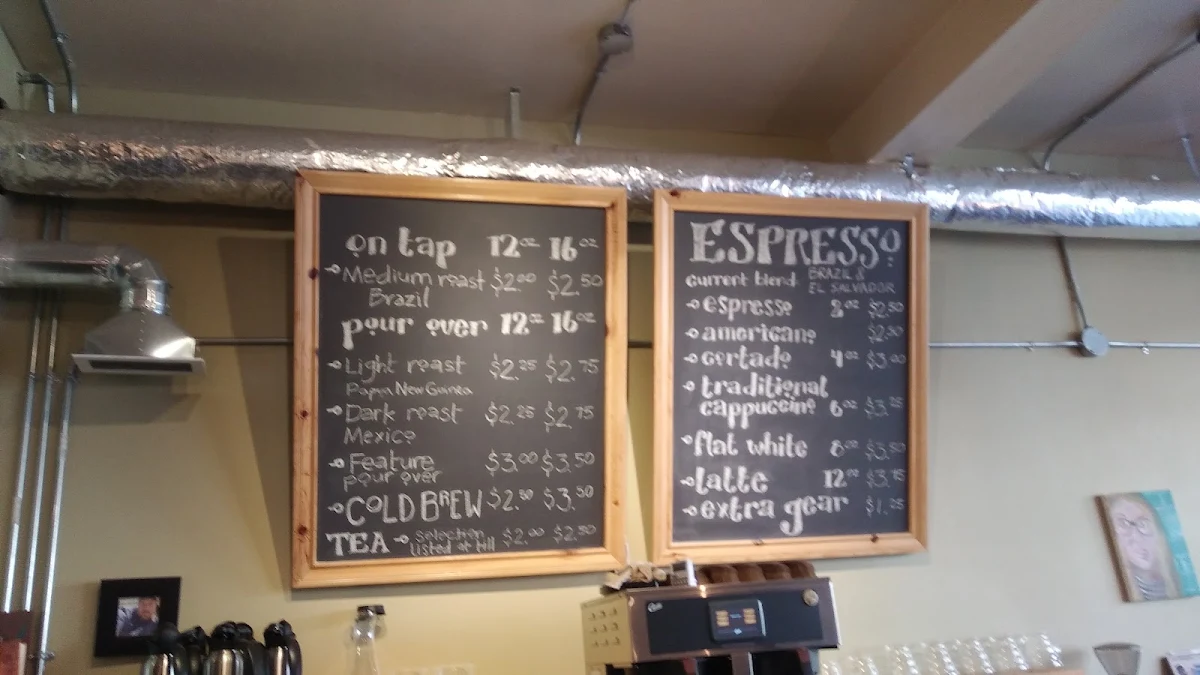 on tap 12oz 16oz
Medium roast $2.00 $2.50
Brazil
pour over 12oz 16oz
Light roast $2.25 $2.75
Papua New Guinea
Dark roast $2.25 $2.75
Mexico
Feature $3.00 $3.50
pour over
COLD BREW $2.50 $3.50
TEA selection $2.00 $2.50
listed at till
ESPRESSO:
current blend BRAZIL &
EL SALVADOR
espresso 2oz $2.50
americano $2.50
cortado 4oz $3.00
traditional
cappuccino 6oz $3.25
flat white 8oz $3.50
latte 12oz $3.75
extra gear $1.25